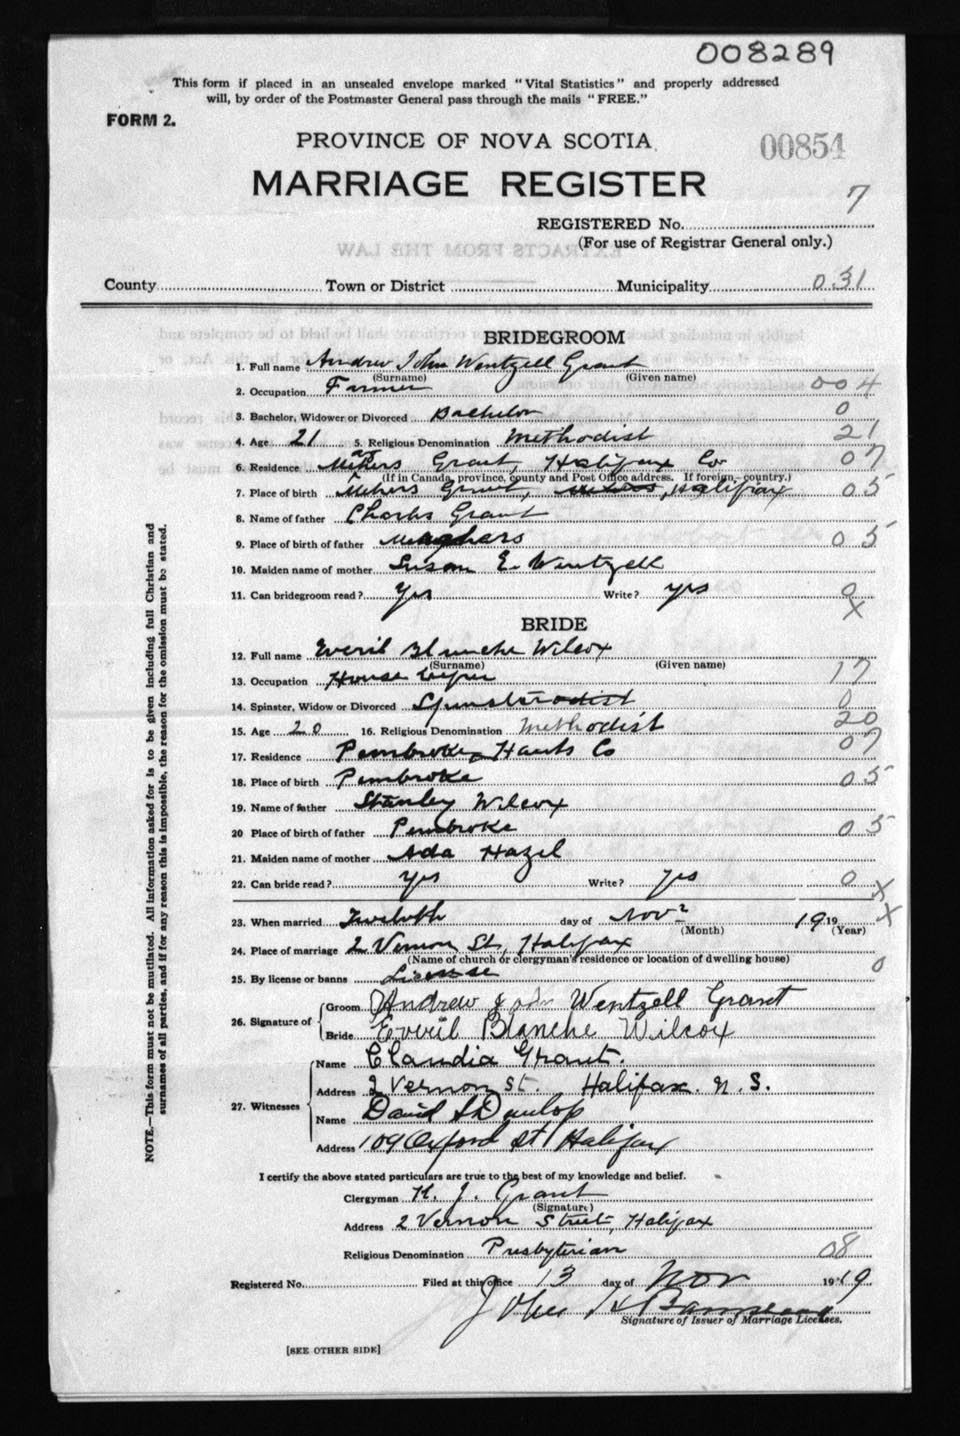 008289
This form if placed in an unsealed envelope marked "Vital Statistics" and properly addressed
will, by order of the Postmaster General pass through the mails "FREE."
FORM 2.
PROVINCE OF NOVA SCOTIA
00854
MARRIAGE REGISTER
7
REGISTERED No.
(For use of Registrar General only.)
County Town or District Municipality 031
BRIDEGROOM
1. Full name Andrew John Wentzell Grant
(Surname) (Given name)
2. Occupation Farmer 004
3. Bachelor, Widower or Divorced Bachelor 0
4. Age 21 5. Religious Denomination Methodist 21
6. Residence Grant, Halifax Co 07
(If in Canada, province, county and Post Office address. If foreign, country.)
7. Place of birth Mehers Grant, Halifax 05
8. Name of father Charls Grant
9. Place of birth of father Meaghers 05
10. Maiden name of mother Susan E. Wentzell
11. Can bridegroom read? Yes Write? yes 0
X
BRIDE
12. Full name Everil Blanche Wilcox
(Surname) (Given name)
13. Occupation House 17
14. Spinster, Widow or Divorced 0
15. Age 20 16. Religious Denomination Methodist 20
17. Residence Pembroke, Hants Co 07
18. Place of birth Pembroke 05
19. Name of father Stanley Wilcox
20 Place of birth of father Pembroke 05
21. Maiden name of mother Ada Hazel
22. Can bride read? yes Write? yes 0 X
23. When married Twelvth day of Nov 1919 X
(Month) (Year)
24. Place of marriage 2 Vernon St, Halifax
(Name of church or clergyman's residence or location of dwelling house) 0
25. By license or banns License
26. Signature of Groom Andrew John Wentzell Grant
Bride Everil Blanche Wilcox
27. Witnesses Name Claudia Grant.
Address 2 Vernon St. Halifax. N. S.
Name David S Dunlop
Address 109 Oxford St Halifax
I certify the above stated particulars are true to the best of my knowledge and belief.
Clergyman H. J. Grant
(Signature)
Address 2 Vernon Street, Halifax
Religious Denomination Presbyterian 08
Registered No. Filed at this office 13 day of Nov 1919
John
Signature of Issuer of Marriage Licenses.
[SEE OTHER SIDE]
NOTE.—This form must not be mutilated. All information asked for is to be given including full Christian and
surnames of all parties, and if for any reason this is impossible, the reason for the omission must be stated.